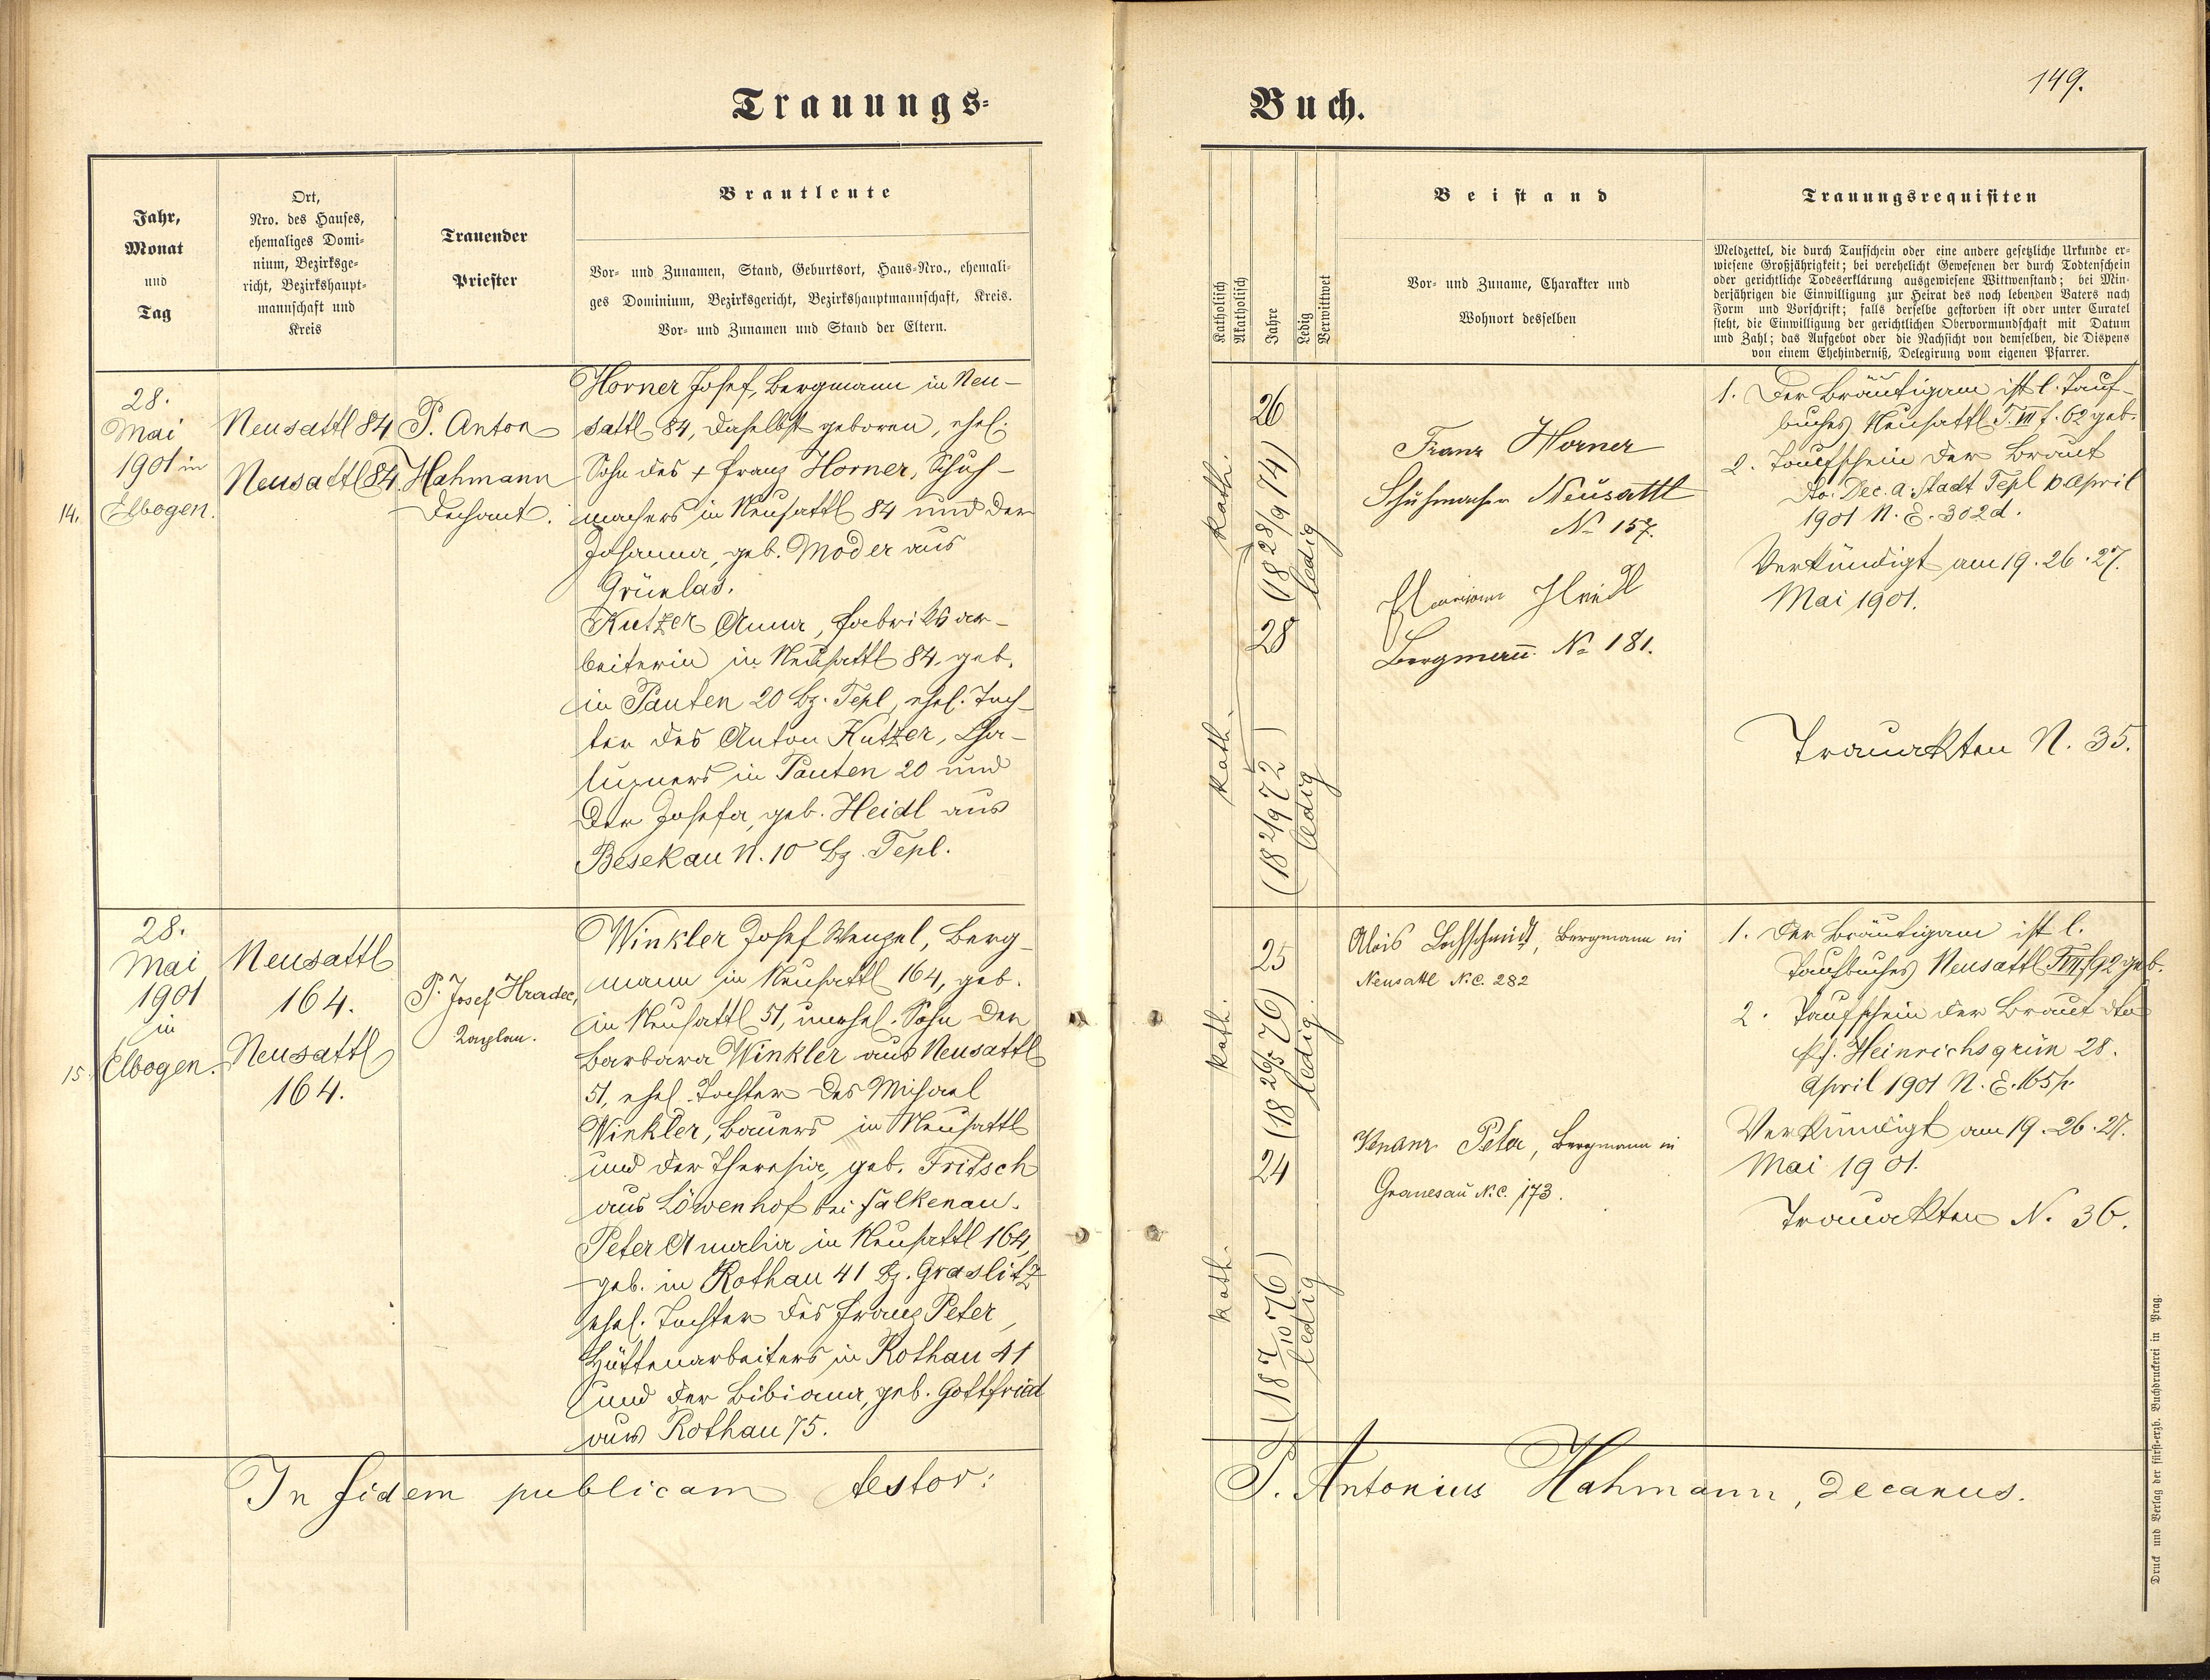 149.
Trauungs-
Buch.
Jahr,
Monat
und
Tag
Ort,
Nro. des Hauses,
ehemaliges Domi-
nium, Bezirksge-
richt, Bezirkshaupt-
mannschaft und
Kreis
Trauender
Priester
Brautleute
Vor- und Zunamen, Stand, Geburtsort, Haus-Nro., ehemali-
ges Dominium, Bezirksgericht, Bezirkshauptmannschaft, Kreis.
Vor- und Zunamen und Stand der Eltern.
Katholisch
Akatholisch
Jahre
Ledig
Verwittwet
Beistand
Vor- und Zuname, Charakter und
Wohnort desselben
Trauungsrequisiten
Meldzettel, die durch Taufschein oder eine andere gesetzliche Urkunde er-
wiesene Großjährigkeit; bei verehelicht Gewesenen der durch Todtenschein
oder gerichtliche Todeserklärung ausgewiesene Wittwenstand; bei Min-
derjährigen die Einwilligung zur Heirat des noch lebenden Vaters nach
Form und Vorschrift; falls derselbe gestorben ist oder unter Curatel
steht, die Einwilligung der gerichtlichen Obervormundschaft mit Datum
und Zahl; das Aufgebot oder die Nachsicht von demselben, die Dispens
von einem Ehehinderniß, Delegirung vom eigenen Pfarrer.
14.
28.
Mai
1901 in
Elbogen.
Neusattl 84
Neusattl 84
P. Anton
Hahmann
Dechant.
Horner Josef, Bergmann in Neu-
sattl 84, daselbst geboren, ehel.
Sohn des + Franz Horner, Schuh-
machers in Neusattl 84 und der
Johanna, geb. Moder aus
Grünlas.
Kutzer Anna, Fabriksar-
beiterin in Neusattl 84, geb.
in Pauten 20 Bz. Tepl, ehel. Toch-
ter des Anton Kutzer, Cha-
lupners in Pauten 20 und
der Josefa, geb. Heidl aus
Besekau N. 10 Bz. Tepl.
kath.
26
(18 28/9 74)
ledig
28
kath.
(18 2/9 72)
ledig
Franz Horner
Schuhmacher Neusattl
No 157.
Heidl
Bergmann No 181.
1. Der Bräutigam ist l. Tauf-
buches Neusattl T. VII f. 62 geb.
2. Taufschein der Braut
dto. Dec. a. Stadt Tepl 10 April
1901 N. E. 302 d.
Verkündigt am 19. 26. 27.
Mai 1901.
Trauakten N. 35.
15.
28.
Mai
1901
in
Elbogen.
Neusattl
164.
Neusattl
164.
P. Josef Hradec,
Kaplan.
Winkler Josef Wenzel, Berg-
mann in Neusattl 164, geb.
in Neusattl 51, unehel. Sohn der
Barbara Winkler aus Neusattl
51, ehel. Tochter des Michael
Winkler, Bauers in Neusattl
und der Theresia, geb. Fritsch
aus Löwenhof bei Falkenau.
Peter Amalia in Neusattl 164,
geb. in Rothau 41 Bz. Graslitz
ehel. Tochter des Franz Peter,
Hüttenarbeiters in Rothau 41
und der Bibiana, geb. Gottfried
aus Rothau 75.
kath.
25
(18 26/5 76)
ledig.
24
kath.
(18 7/10 76)
ledig
Alois Lochschmidt, Bergmann in
Neusattl N.C. 282
Venanz Peter, Bergmann in
Granesau N.C. 173.
1. Der Bräutigam ist l.
Taufbuches Neusattl T. VII f. 92 geb.
2. Taufschein der Braut dto
Pf. Heinrichsgrün 28.
April 1901 N. E. 165 p.
Verkündigt am 19. 26. 27.
Mai 1901.
Trauakten N. 36.
In fidem publicam testor:
P. Antonius Hahmann, decanus.
Druck und Verlag der fürst-erzb. Buchdruckerei in Prag.